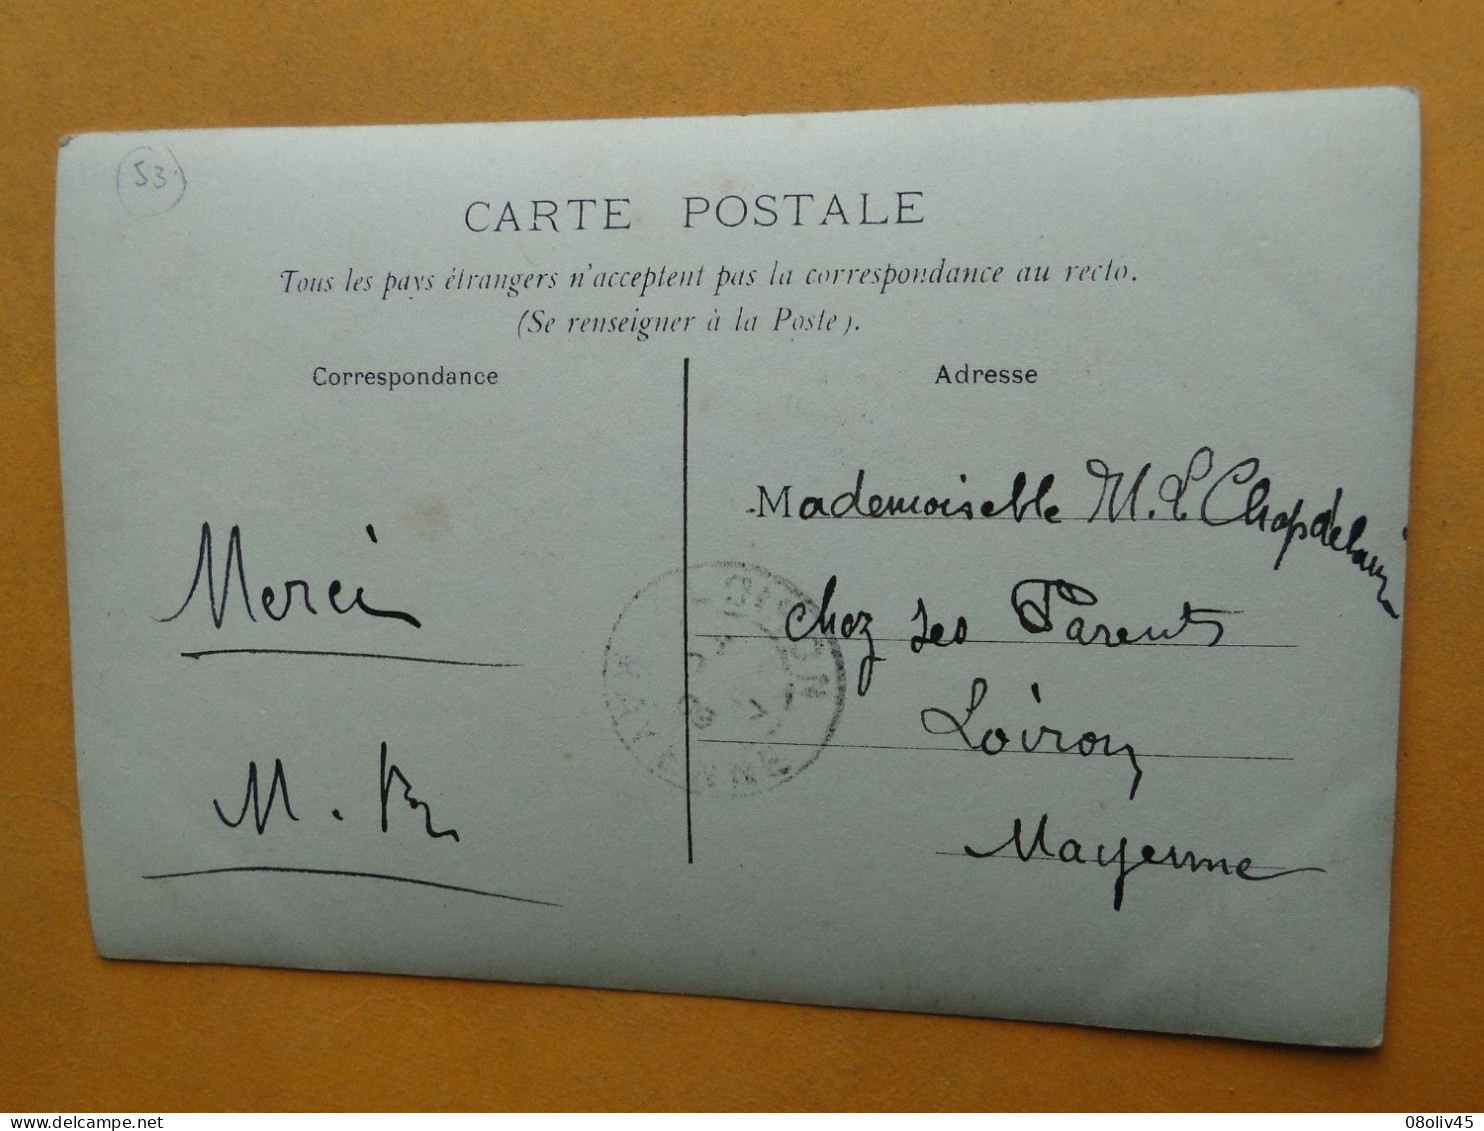 53
CARTE POSTALE
Tous les pays étrangers n'acceptent pas la correspondance au recto.
(Se renseigner à la Poste).
Correspondance
Adresse
Merci
M.
Mademoiselle M. L Chapdelaine
chez ses Parents
Loiron
Mayenne
LOIRON
MAYENNE
08oliv45